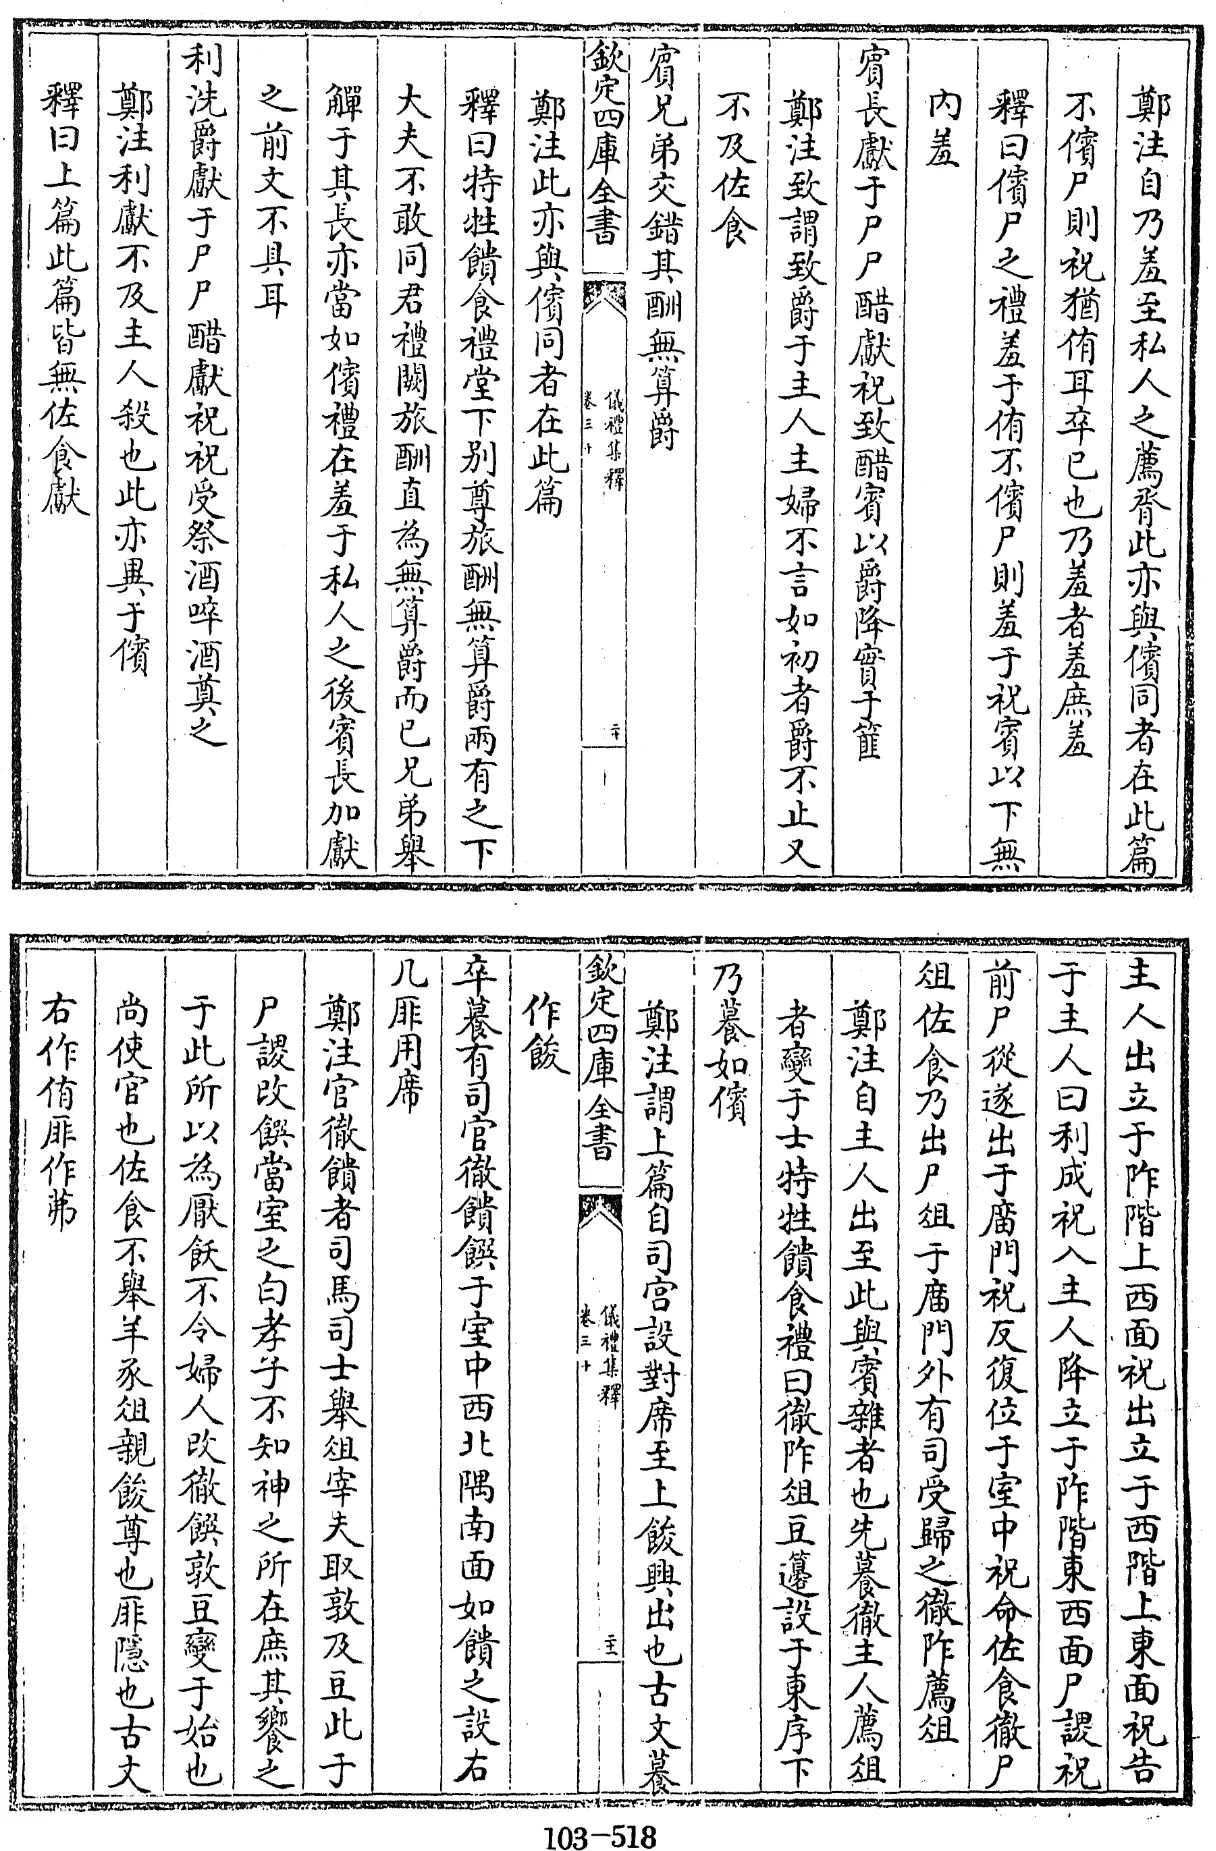 鄭注自乃羞至私人之薦脀此亦與儐同者在此篇
不儐尸則祝猶侑耳卒已也乃羞者羞庶羞
釋曰儐尸之禮羞于侑不儐尸則羞于祝賓以下無
内羞
賓長獻于尸尸醋獻祝致醋賓以爵降實于篚
鄭注致謂致爵于主人主婦不言如初者爵不止又
不及佐食
賓兄弟交錯其酬無算爵
欽定四庫全書
儀禮集釋
卷三十
二十
鄭注此亦與儐同者在此篇
釋曰特牲饋食禮堂下别尊旅酬無算爵兩有之下
大夫不敢同君禮闕旅酬直為無算爵而已兄弟舉
觶于其長亦當如儐禮在羞于私人之後賓長加獻
之前文不具耳
利洗爵獻于尸尸醋獻祝祝受祭酒啐酒奠之
鄭注利獻不及主人殺也此亦異于儐
釋曰上篇此篇皆無佐食獻
主人出立于阼階上西面祝出立于西階上東面祝告
于主人曰利成祝入主人降立于阼階東西面尸謖祝
前尸從遂出于廟門祝反復位于室中祝命佐食徹尸
俎佐食乃出尸俎于廟門外有司受歸之徹阼薦俎
鄭注自主人出至此與賓雜者也先䬻徹主人薦俎
者變于士特牲饋食禮曰徹阼俎豆籩設于東序下
乃䬻如儐
鄭注謂上篇自司宫設對席至上餕興出也古文䬻
欽定四庫全書
儀禮集釋
卷三十
主
作餕
卒䬻有司官徹饋饌于室中西北隅南面如饋之設右
几厞用席
鄭注官徹饋者司馬司士舉俎宰夫取敦及豆此于
尸謖改饌當室之白孝子不知神之所在庶其饗之
于此所以為厭飫不令婦人改徹饌敦豆變于始也
尚使官也佐食不舉羊豕俎親餕尊也厞隱也古文
右作侑厞作茀
103-518